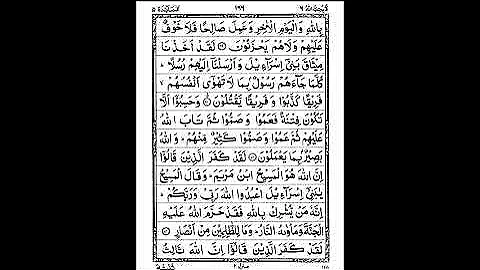 لايحب الله ٦ ١٢٦ المآئدة ٥
بِاللّٰهِ وَالْيَوْمِ الْاٰخِرِ وَعَمِلَ صَالِحًا فَلَا خَوْفٌ
عَلَيْهِمْ وَلَاهُمْ يَحْزَنُوْنَ لَقَدْ اَخَذْنَا
مِيْثَاقَ بَنِيْٓ اِسْرَآءِيْلَ وَاَرْسَلْنَآ اِلَيْهِمْ رُسُلًا
كُلَّمَا جَآءَهُمْ رَسُوْلٌۢ بِمَا لَا تَهْوٰٓى اَنْفُسُهُمْ
فَرِيْقًا كَذَّبُوْا وَفَرِيْقًا يَّقْتُلُوْنَ وَحَسِبُوْٓا اَلَّا
تَكُوْنَ فِتْنَةٌ فَعَمُوْا وَصَمُّوْا ثُمَّ تَابَ اللّٰهُ
عَلَيْهِمْ ثُمَّ عَمُوْا وَصَمُّوْا كَثِيْرٌ مِّنْهُمْ وَاللّٰهُ
بَصِيْرٌۢ بِمَا يَعْمَلُوْنَ لَقَدْ كَفَرَ الَّذِيْنَ قَالُوْٓا
اِنَّ اللّٰهَ هُوَ الْمَسِيْحُ ابْنُ مَرْيَمَ وَقَالَ الْمَسِيْحُ
يٰبَنِيْٓ اِسْرَآءِيْلَ اعْبُدُوا اللّٰهَ رَبِّيْ وَرَبَّكُمْ
اِنَّهٗ مَنْ يُّشْرِكْ بِاللّٰهِ فَقَدْ حَرَّمَ اللّٰهُ عَلَيْهِ
الْجَنَّةَ وَمَاْوٰىهُ النَّارُ وَمَا لِلظّٰلِمِيْنَ مِنْ اَنْصَارٍ
لَقَدْ كَفَرَ الَّذِيْنَ قَالُوْٓا اِنَّ اللّٰهَ ثَالِثُ
منزل ٢